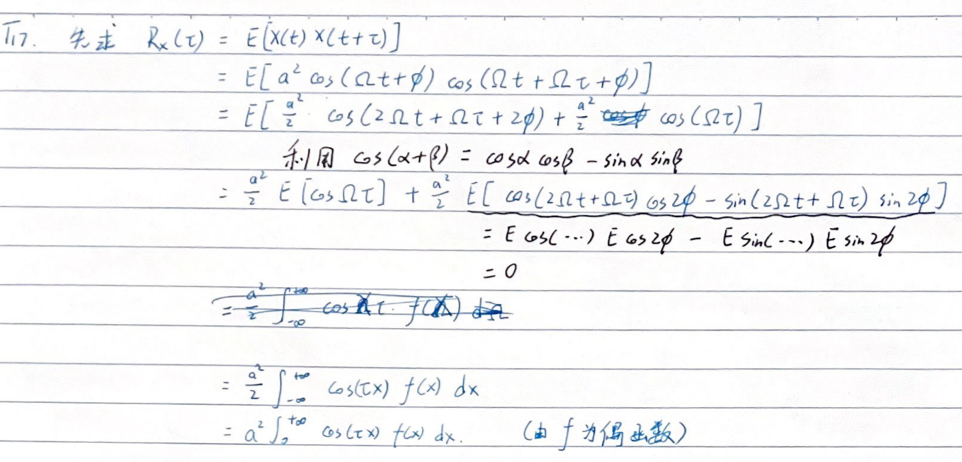 T17. 先求 Rx(τ) = E[X(t) X(t+τ)]
= E[a² cos(Ωt+φ) cos(Ωt+Ωτ+φ)]
= E[a²/2 cos(2Ωt+Ωτ+2φ) + a²/2 cos(Ωτ)]
利用 cos(α+β) = cosα cosβ - sinα sinβ
= a²/2 E[cosΩτ] + a²/2 E[cos(2Ωt+Ωτ) cos2φ - sin(2Ωt+Ωτ) sin2φ]
= E cos(…) E cos2φ - E sin(…) E sin2φ
= 0
= a²/2 ∫_{-∞}^{+∞} cos(τx) f(x) dx
= a² ∫_0^{+∞} cos(τx) f(x) dx. (由 f 为偶函数)